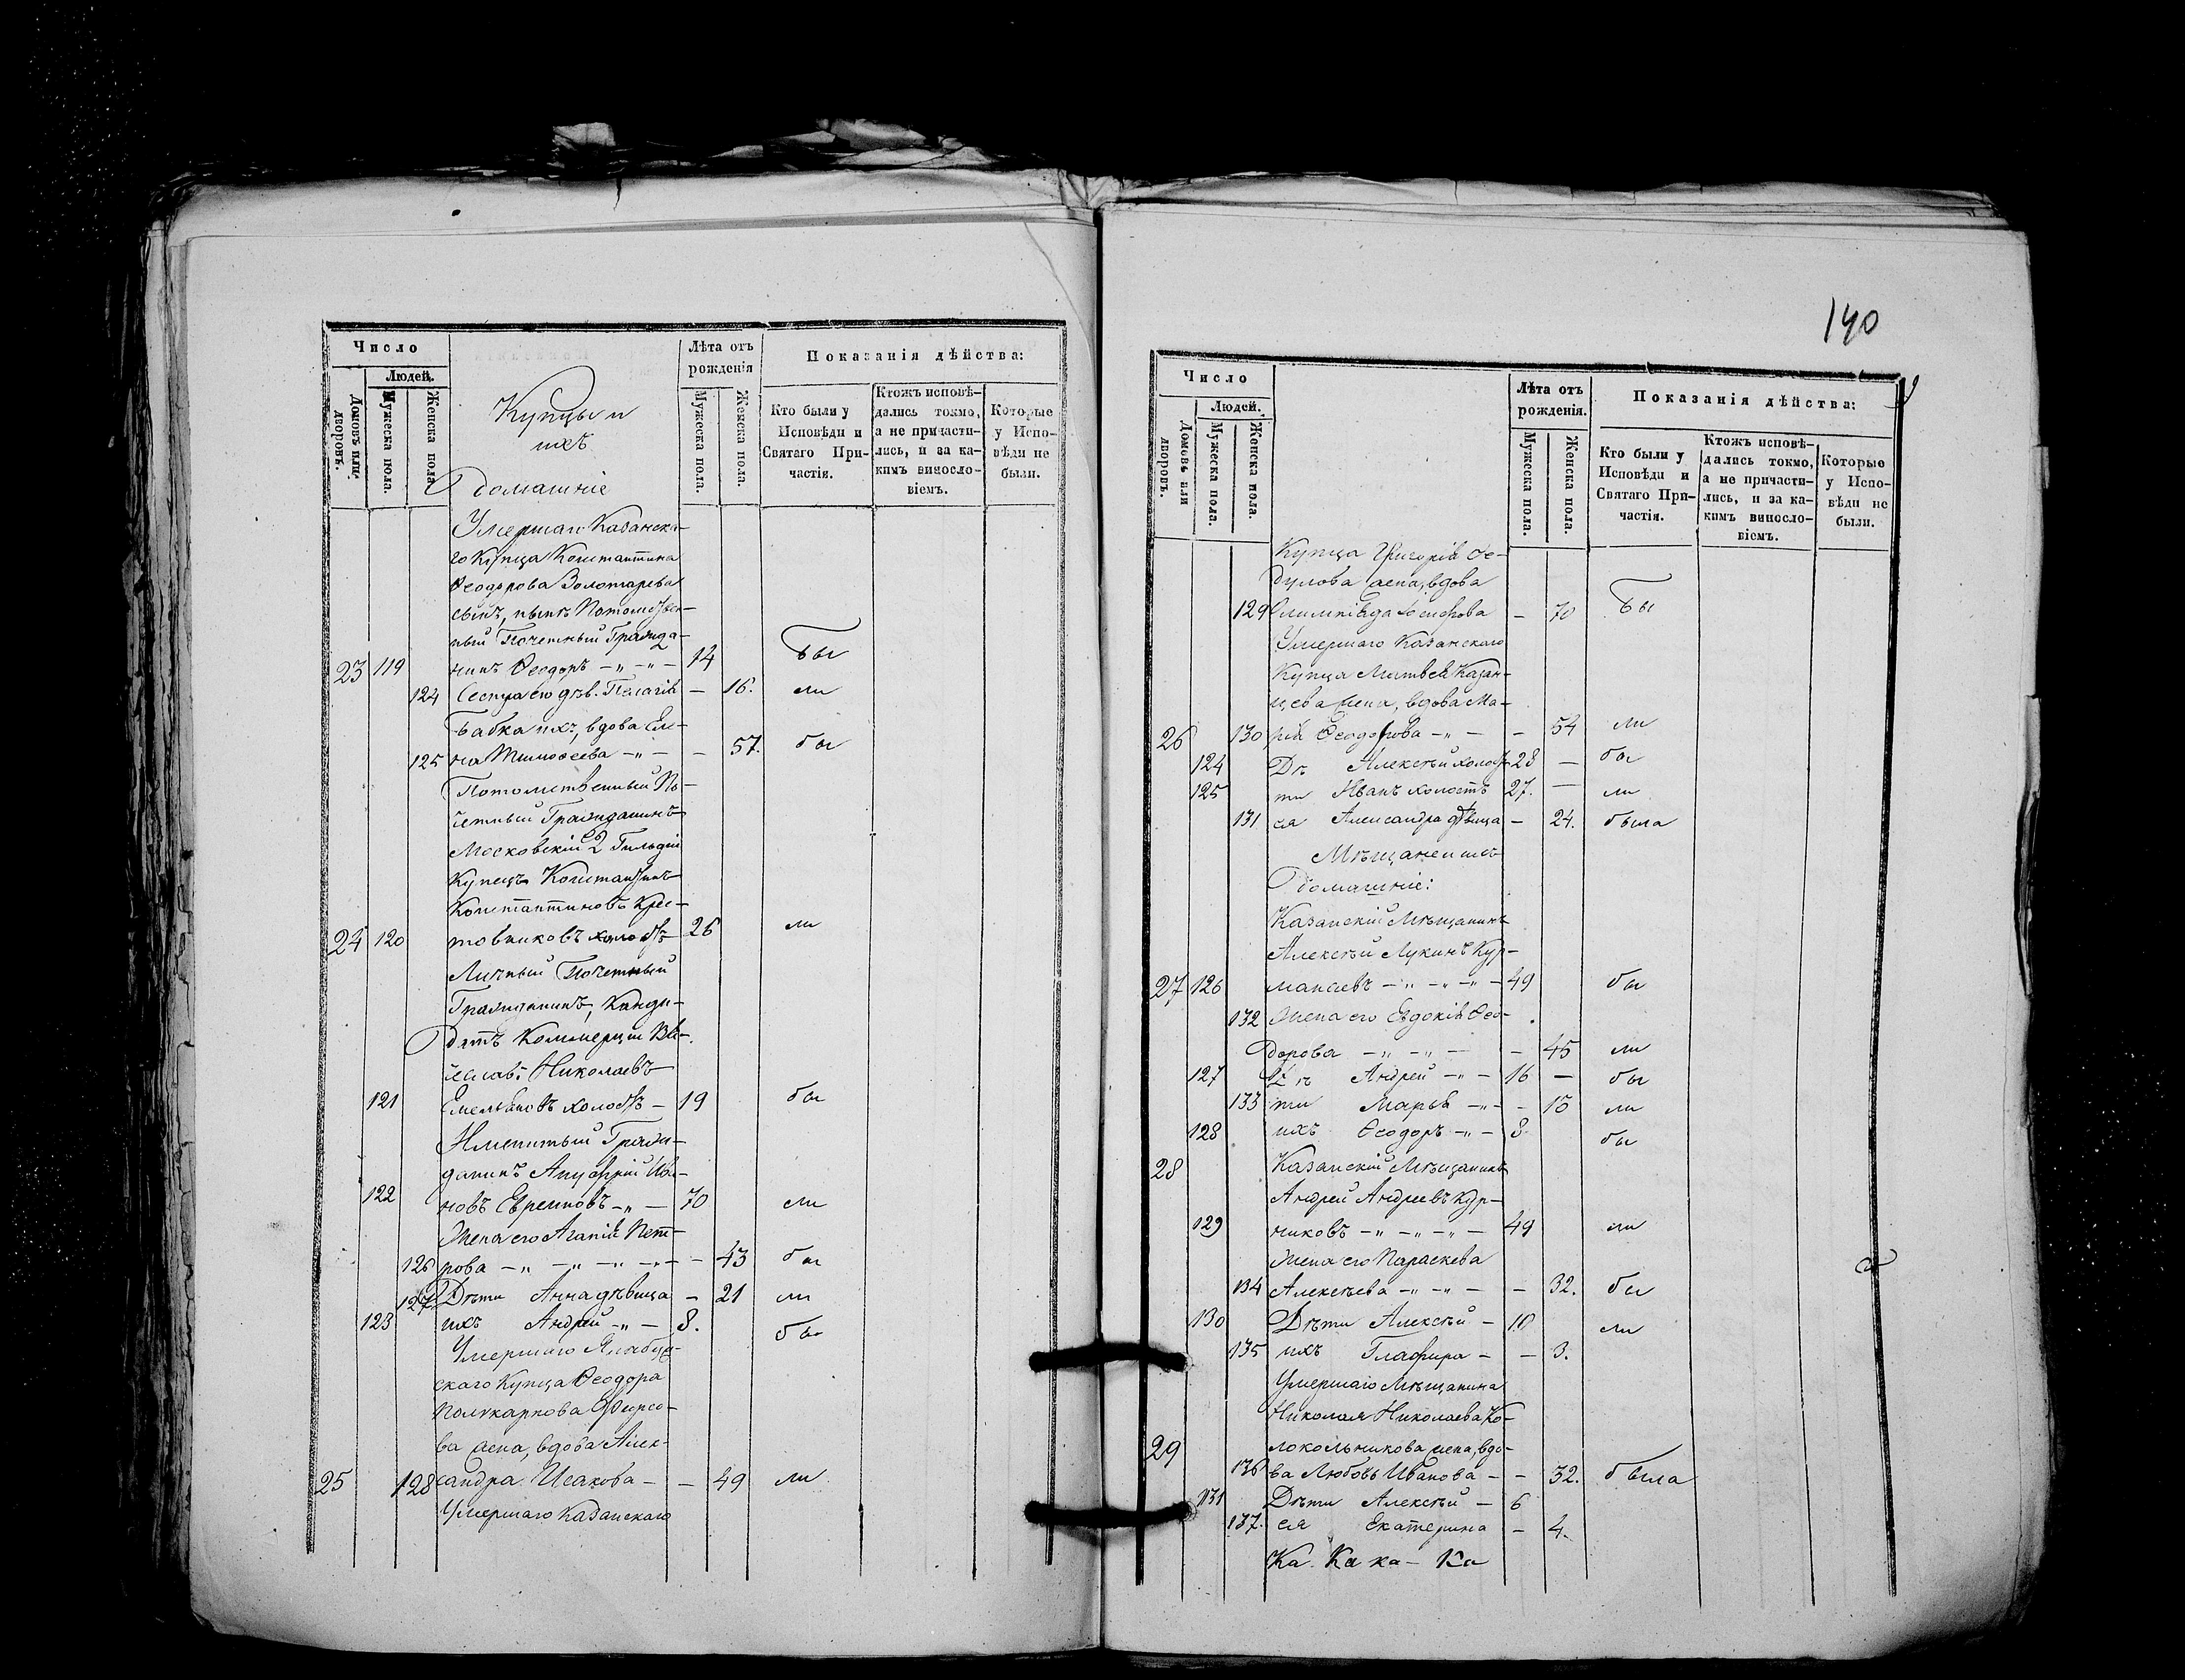 Число
Людей.
Домовъ или дворовъ.
Мужеска пола.
Женска пола.
Лѣта отъ рожденія
Мужеска пола.
Женска пола.
Показанія дѣйства:
Кто были у Исповѣди и Святаго Причастія.
Ктожъ исповѣдались токмо, а не причастились, и за какимъ винословіемъ.
Которые у Исповѣди не были.
Купцы и
ихъ
домашніе
Умершаго Казанска-
го Купца Константина
Ѳеодорова Золотарева
сынъ, нынѣ Потомствен-
ный Почетный Гражда-
23 119 нинъ Ѳеодоръ -„-„- 14 бы
124 Сестра его дѣв. Пелагія - 16. ли
Бабка ихъ, вдова Еле-
125 на Тимоѳеева -„- - 57. бы
Потомственный По-
четный Гражданинъ
Московскій 2 Гильдіи
Купецъ Константинъ
Константиновъ Крес-
24 120 товниковъ холостъ 26 ли
Личный Почетный
Гражданинъ, Канди-
датъ Коммерціи
Николаевъ
121 Емельяновъ холостъ - 19 бы
Именитый Граж-
данинъ Ануфрій Ива-
122 новъ Евреиновъ -„- 70 ли
Жена его Агапія Пет-
126 рова -„-„-„- - 43 бы
127 Дѣти Анна дѣвица - 21 ли
123 ихъ Андрей -„- 8. бы
Умершаго
скаго Купца Ѳеодора
Поликарпова Фирсо-
ва жена, вдова Алек-
25 128 сандра Исакова - - 49 ли
Умершаго Казанскаго
140
Число
Людей.
Домовъ или дворовъ.
Мужеска пола.
Женска пола.
Лѣта отъ рожденія.
Мужеска пола.
Женска пола.
Показанія дѣйства:
Кто были у Исповѣди и Святаго Причастія.
Ктожъ исповѣдались токмо, а не причастились, и за какимъ винословіемъ.
Которые у Исповѣди не были.
Купца Григорія Ѳе-
дулова жена, вдова
129 Олимпіада - 70 бы
Умершаго Казанскаго
Купца Матвея Казан-
цева жена, вдова Ма-
26 130 рія Ѳеодорова -„- - 54 ли
124 Дѣ Алексѣй холост 28 - бы
125 ти Иванъ холостъ 27. - ли
131 ея Александра дѣвица - 24. была
Мѣщане и ихъ
домашніе:
Казанскій Мѣщанинъ
Алексѣй Лукинъ Кур-
27 126 манаевъ -„-„-„- 49 бы
132 Жена его Евдокія Ѳео-
дорова -„-„- - 45 ли
127 Дѣ Андрей -„- 16 - бы
133 ти Марья -„- - 15 ли
128 ихъ Ѳеодоръ -„- 8 бы
28 Казанскій Мѣщанинъ
Андрей Андреевъ Кур-
129 никовъ -„-„-„- 49 ли
Жена его Параскева
134 Алексѣева -„-„- - 32. бы
130 Дѣти Алексѣй - 10 ли
135 ихъ Глафира - - 3.
Умершаго Мѣщанина
Николая Николаева Ко-
29 локольникова жена, вдо-
136 ва Любовь Иванова - - 32. была
131 Дѣти Алексѣй - 6
137. ея Екатерина - 4.
Ка. Ка ка - Ка